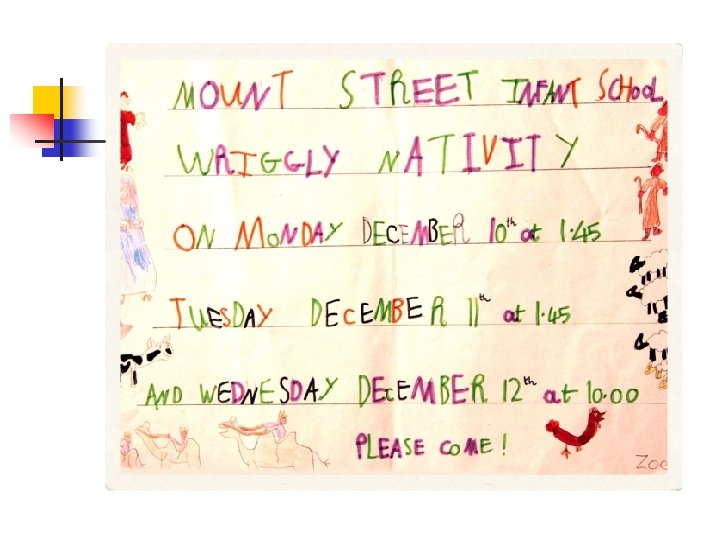 MOUNT STREET INFANT SCHOOL
WRIGGLY NATIVITY
ON MONDAY DECEMBER 10th at 1.45
TUESDAY DECEMBER 11th at 1.45
AND WEDNESDAY DECEMBER 12th at 10.00
PLEASE COME!
Zoe